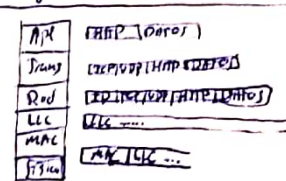 Apl HTTP DATOS
Trans TCP/UDP HTTP DATOS
Red IP TCP/UDP HTTP DATOS
LLC LLC ....
MAC
Físico MAC LLC ...